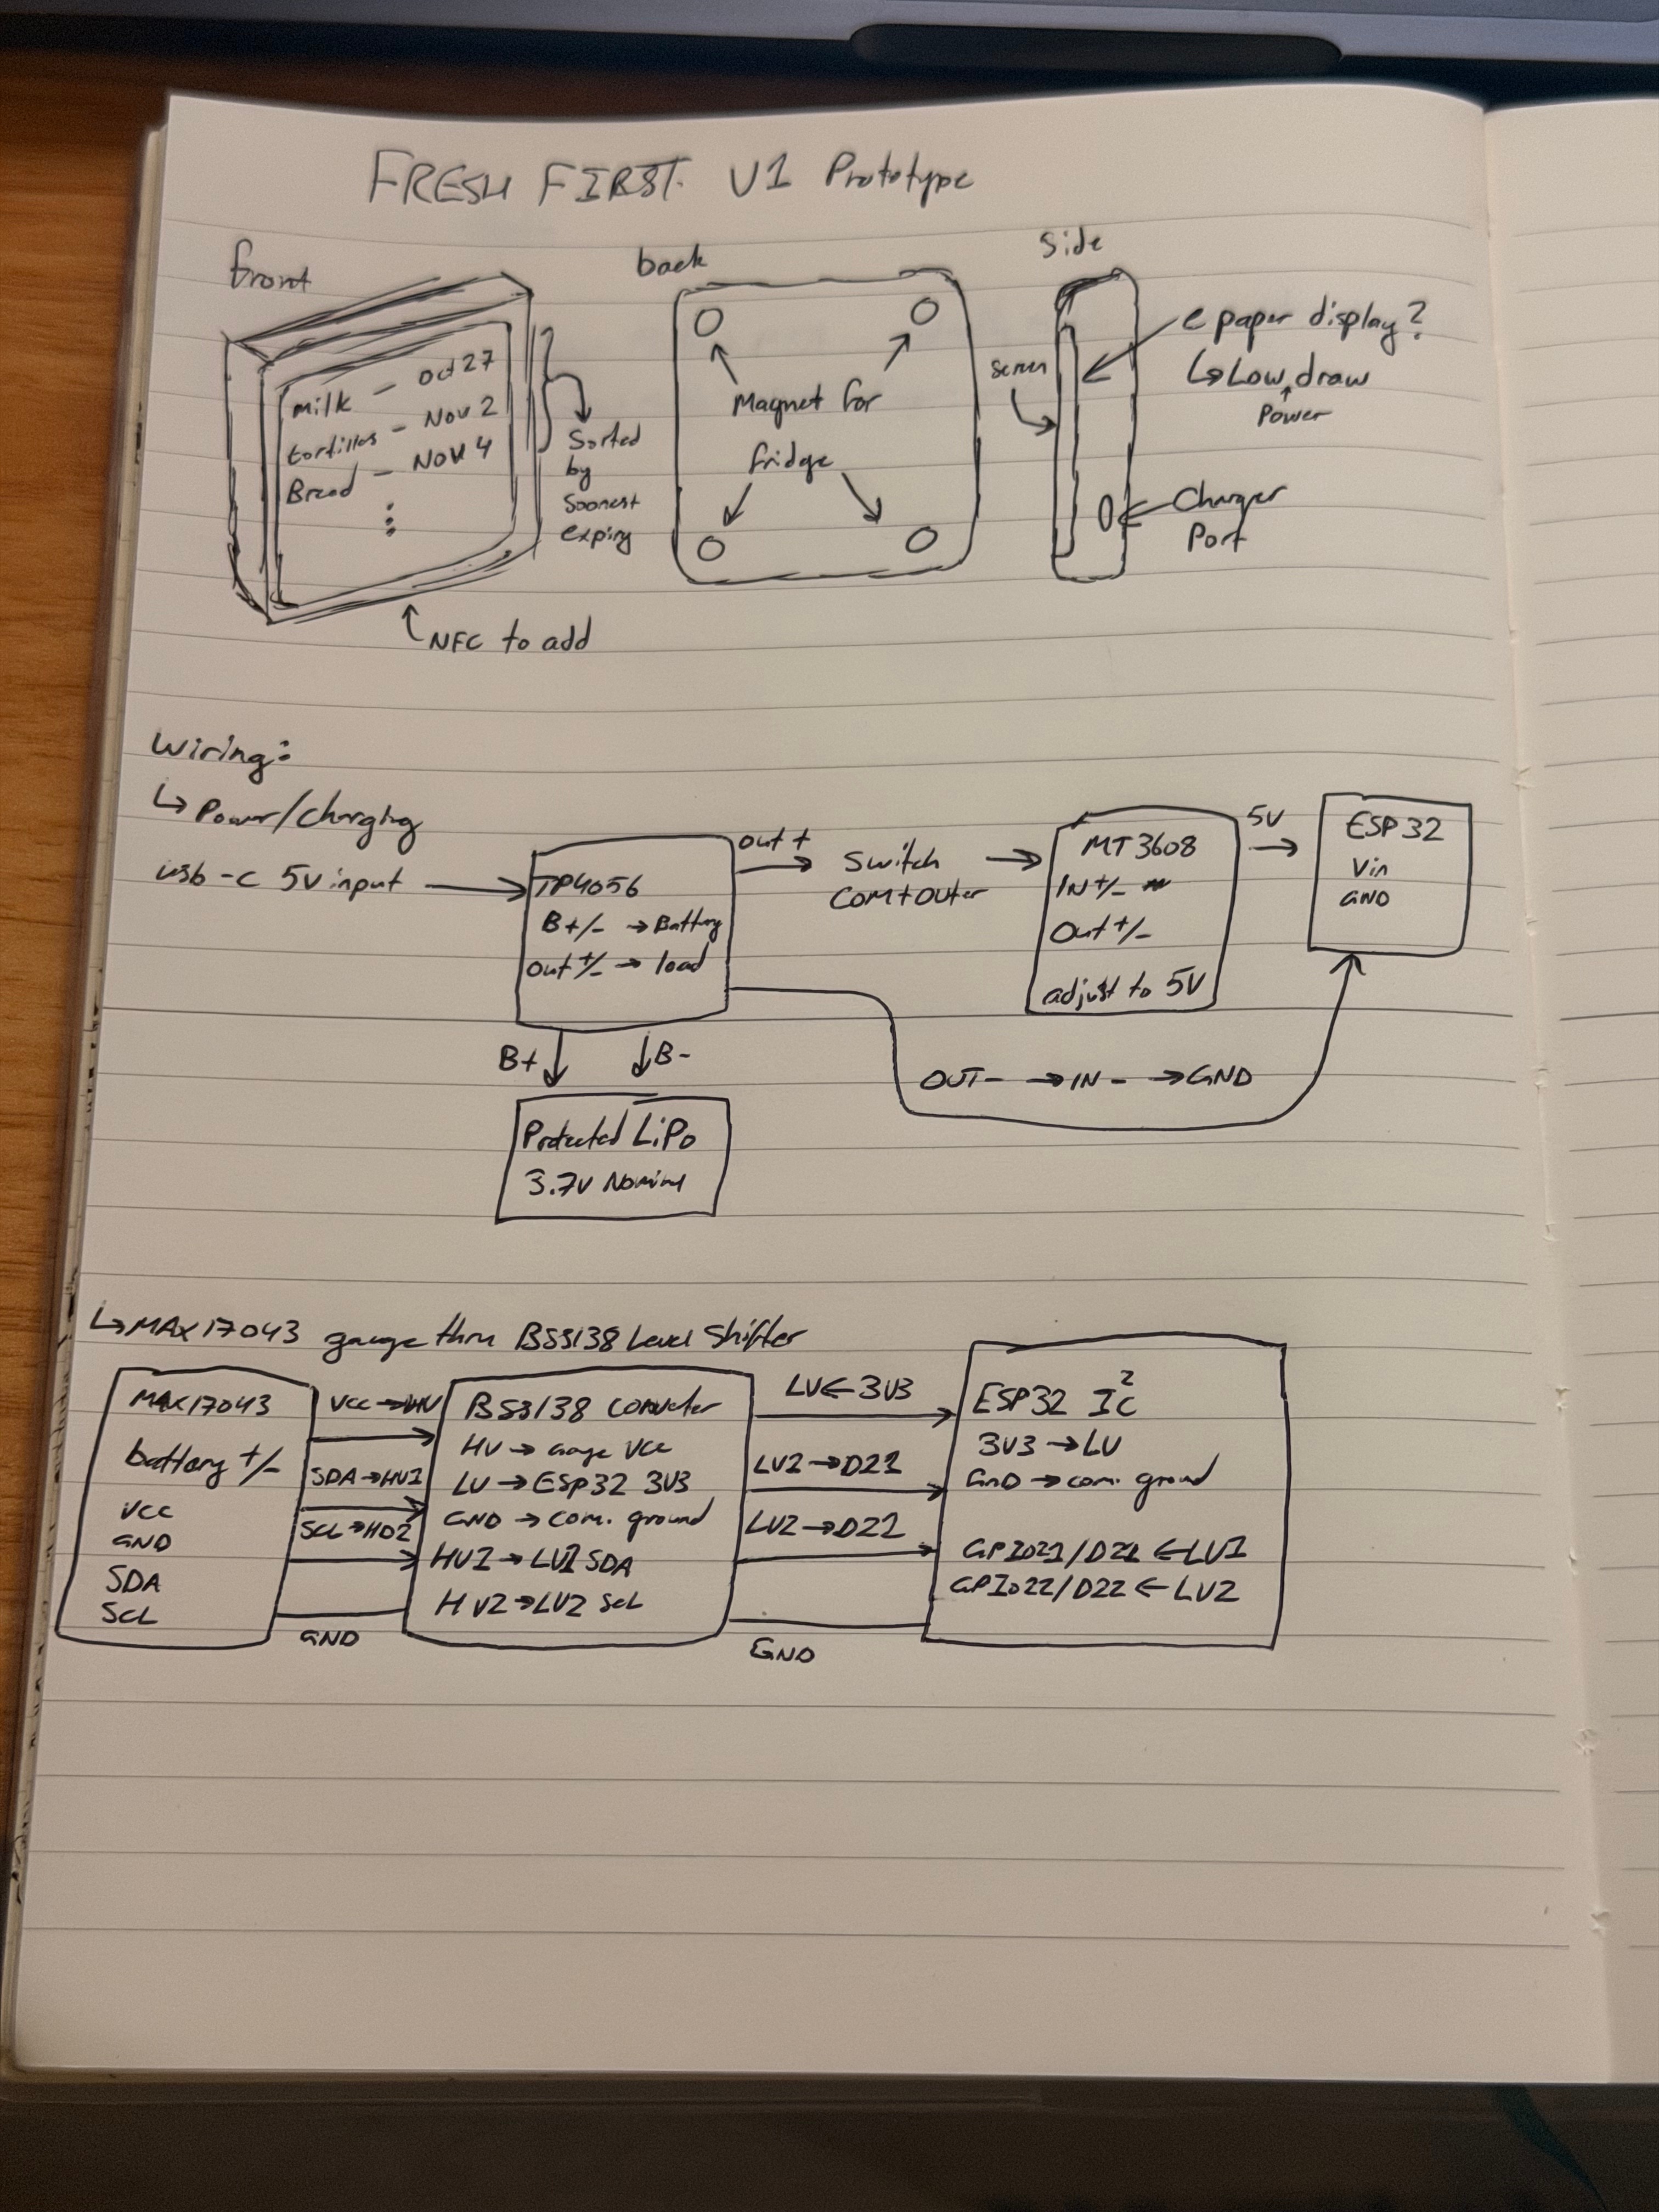 FRESH FIRST. V1 Prototype
front
back
Side
milk — Oct 27
tortillas — Nov 2
Bread — Nov 4
Sorted
by
Soonest
expiring
NFC to add
Magnet for
fridge
screen
e paper display?
↳ Low draw
Power
Charger
Port
Wiring:
↳ Power/charging
usb-c 5V input
TP4056
B+/- → Battery
Out +/- → load
out +
Switch
COM+Outer
MT3608
IN +/-
Out +/-
adjust to 5V
5V
ESP32
Vin
GND
B+
B-
OUT- → IN- → GND
Protected LiPo
3.7V Nominal
↳ MAX17043 gauge thru BSS138 Level Shifter
MAX17043
battery +/-
VCC
GND
SDA
SCL
VCC → HV
SDA → HV1
SCL → HD2
GND
BSS138 Converter
HV → gauge VCC
LV → ESP32 3V3
GND → com. ground
HV1 → LV1 SDA
HV2 → LV2 SCL
LV ← 3V3
LV1 → D21
LV2 → D21
GND
ESP32 I²C
3V3 → LV
GND → com. ground
GPIO21/D21 ← LV1
GPIO22/D22 ← LV2